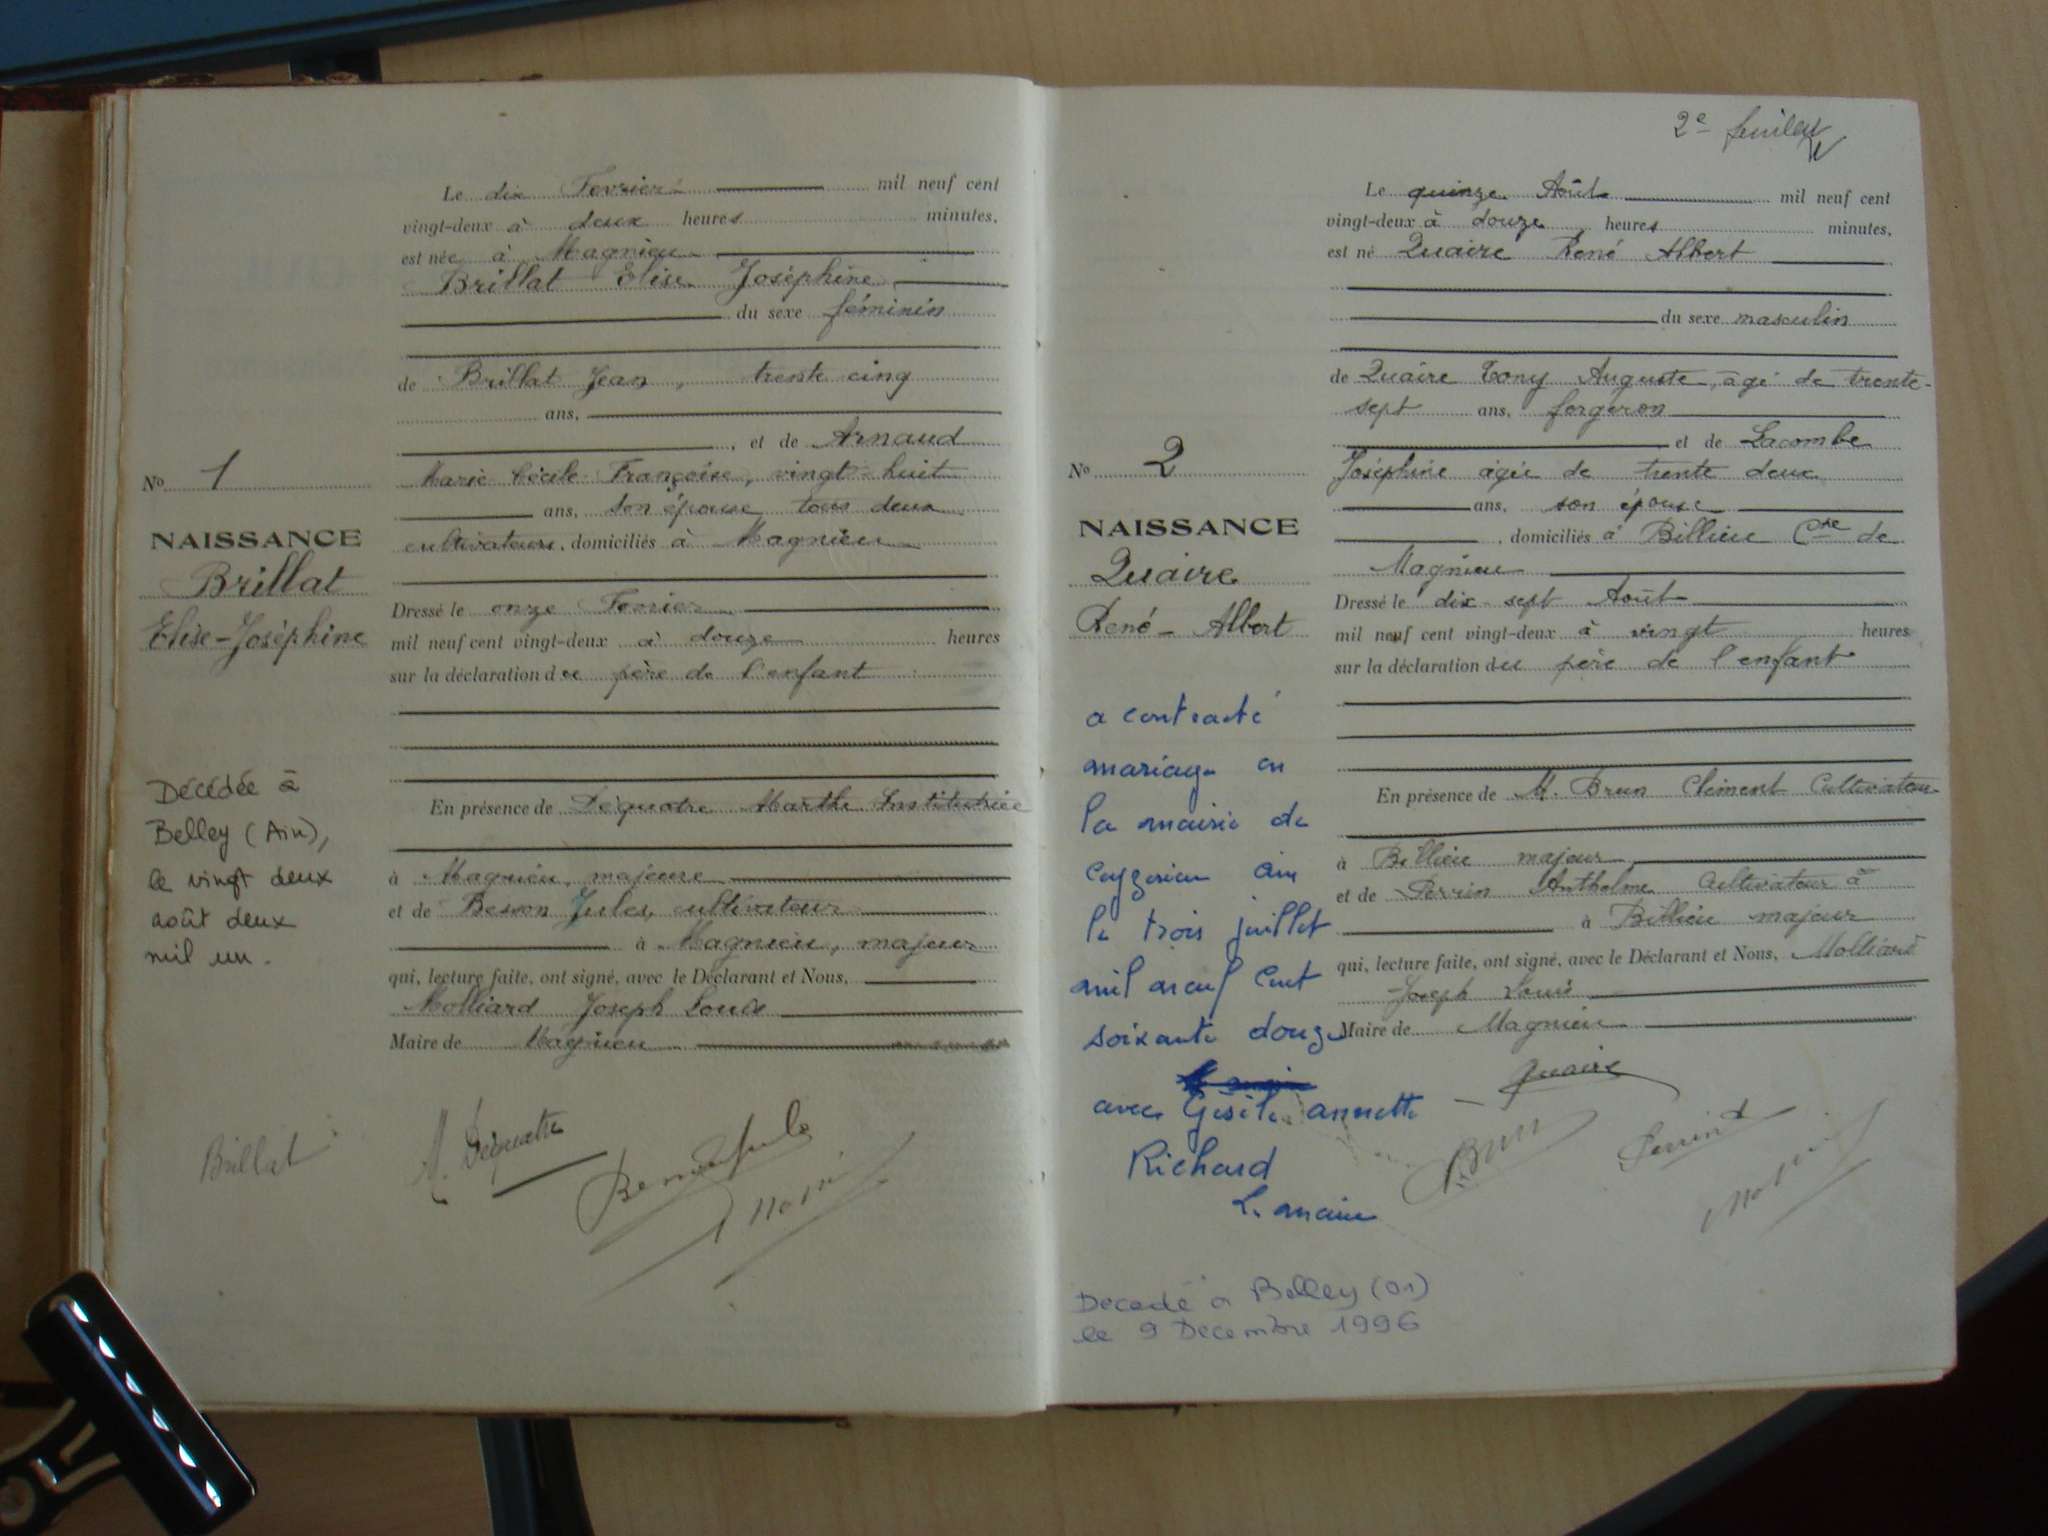 Le dix Fevrier mil neuf cent
vingt-deux à deux heures minutes,
est née à Magnieu
Brillat Elise Joséphine
du sexe féminin
de Brillat Jean, trente cinq
ans,
, et de Arnaud
Marie Cécile Françoise, vingt-huit
ans, son épouse tous deux
cultivateurs, domiciliés à Magnieu
No 1
NAISSANCE
Brillat
Elise-Joséphine
Dressé le onze Fevrier
mil neuf cent vingt-deux à douze heures
sur la déclaration du père de l'enfant
En présence de Déquatre Marthe Institutrice
à Magnieu, majeure
et de Besson Jules, cultivateur
à Magnieu, majeur
qui, lecture faite, ont signé, avec le Déclarant et Nous,
Molliard Joseph Louis
Maire de Magnieu
Décédée à
Belley (Ain),
le vingt deux
août deux
mil un.
Brillat
M. Déquatre
2e feuillet
Le quinze Août mil neuf cent
vingt-deux à douze heures minutes,
est né Quaire René Albert
du sexe masculin
de Quaire Tony Auguste, âgé de trente-
sept ans, forgeron
et de Lacombe
Joséphine âgée de trente deux
ans, son épouse
, domiciliés à Billieu Cne de
Magnieu
No 2
NAISSANCE
Quaire
René-Albert
Dressé le dix-sept Août
mil neuf cent vingt-deux à vingt heures
sur la déclaration du père de l'enfant
En présence de M. Brun Clément Cultivateur
à Billieu majeur
et de Perrin Anthelme Cultivateur à
à Billieu majeur
qui, lecture faite, ont signé, avec le Déclarant et Nous, Molliard
Joseph Louis
Maire de Magnieu
a contracté
mariage en
la mairie de
Ceyzerieu ain
le trois juillet
mil neuf cent
soixante douze
avec Gisèle annette
Richard
L. maire
Quaire
Brun
Perrin
Décédé à Belley (01)
le 9 Décembre 1996